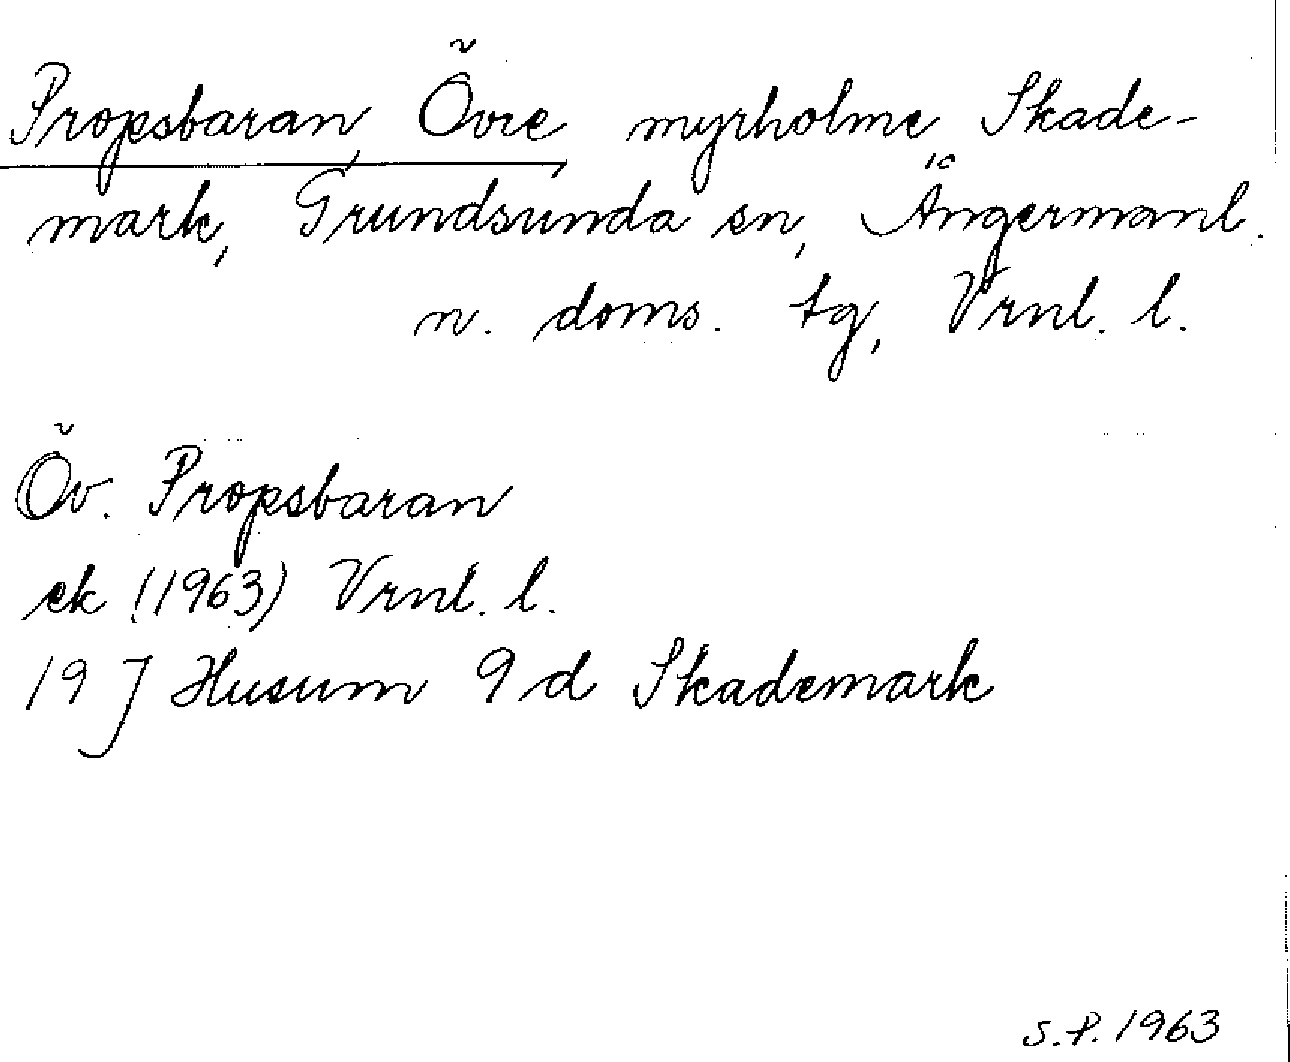 Propsbaran, Övre, myrholme Skade-
mark, Grundsunda sn, Ångermanl.
n. doms. tg, Vrnl. l.
Öv. Propsbaran
ek (1963) Vrnl. l.
19 J Husum 9 d Skademark
S.P. 1963